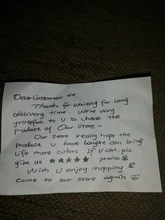 Dear Customer ^^
Thanks for waiting for long
delivery time. We're very
grateful to U to choose the
product of Our Store ~
Our Store really hope the
product U have bought can bring
life more colors. If U can, pls
give us ★★★★★ praise
Wish U enjoy shopping
come to our store again